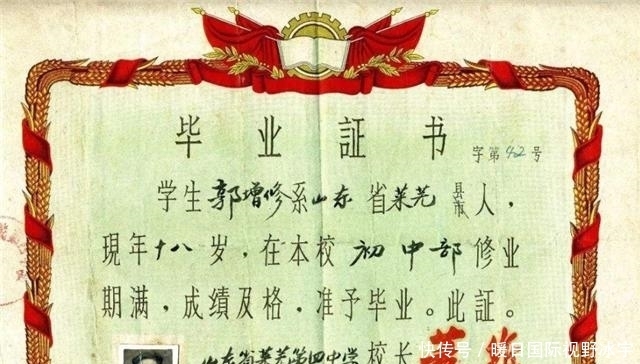 毕业証书
字第42号
学生郭增修系山东省莱芜县市人，
現年十八岁，在本校初中部修业
期满，成绩及格，准予毕业。此証。
山东省莱芜第四中学校长
快传号／暖日国际视野